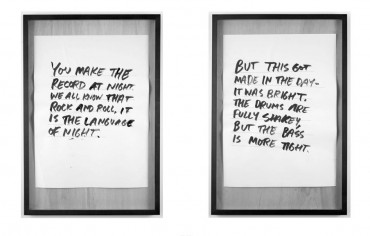 YOU MAKE THE
RECORD AT NIGHT.
WE ALL KNOW THAT
ROCK AND ROLL, IT
IS THE LANGUAGE
OF NIGHT.
BUT THIS GOT
MADE IN THE DAY-
IT WAS BRIGHT.
THE DRUMS ARE
FULLY SHAKEY,
BUT THE BASS
IS MORE TIGHT.